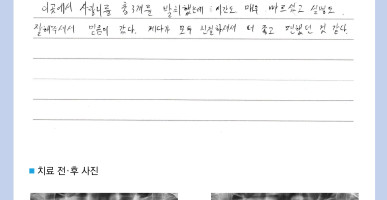 이곳에서 사랑니를 총 3개를 발치했는데 시간도 매우 빠르셨고 설명도
잘해주셔서 믿음이 갔다. 게다가 모두 친절하셔서 더 좋고 편했던 것 같다.
■ 치료 전·후 사진